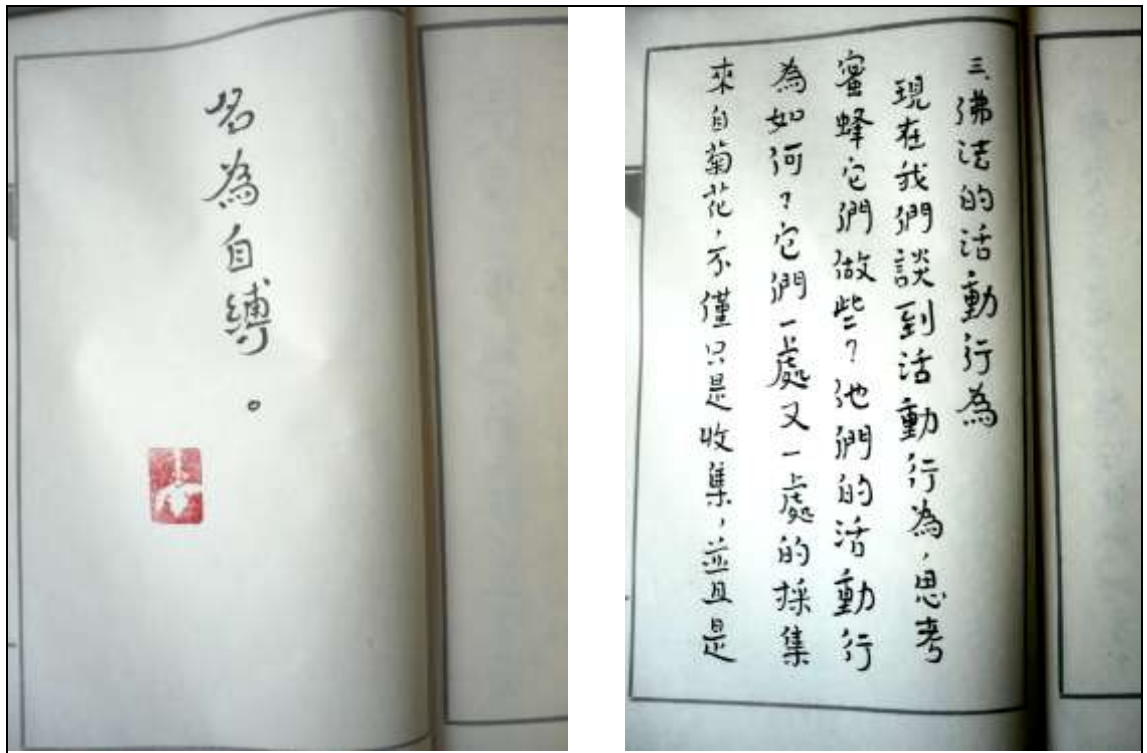 名為自縛。
三、佛法的活動行為
現在我們談到活動行為，思考
蜜蜂它們做些？他們的活動行
為如何？它們一處又一處的採集
來自菊花，不僅只是收集，並且是